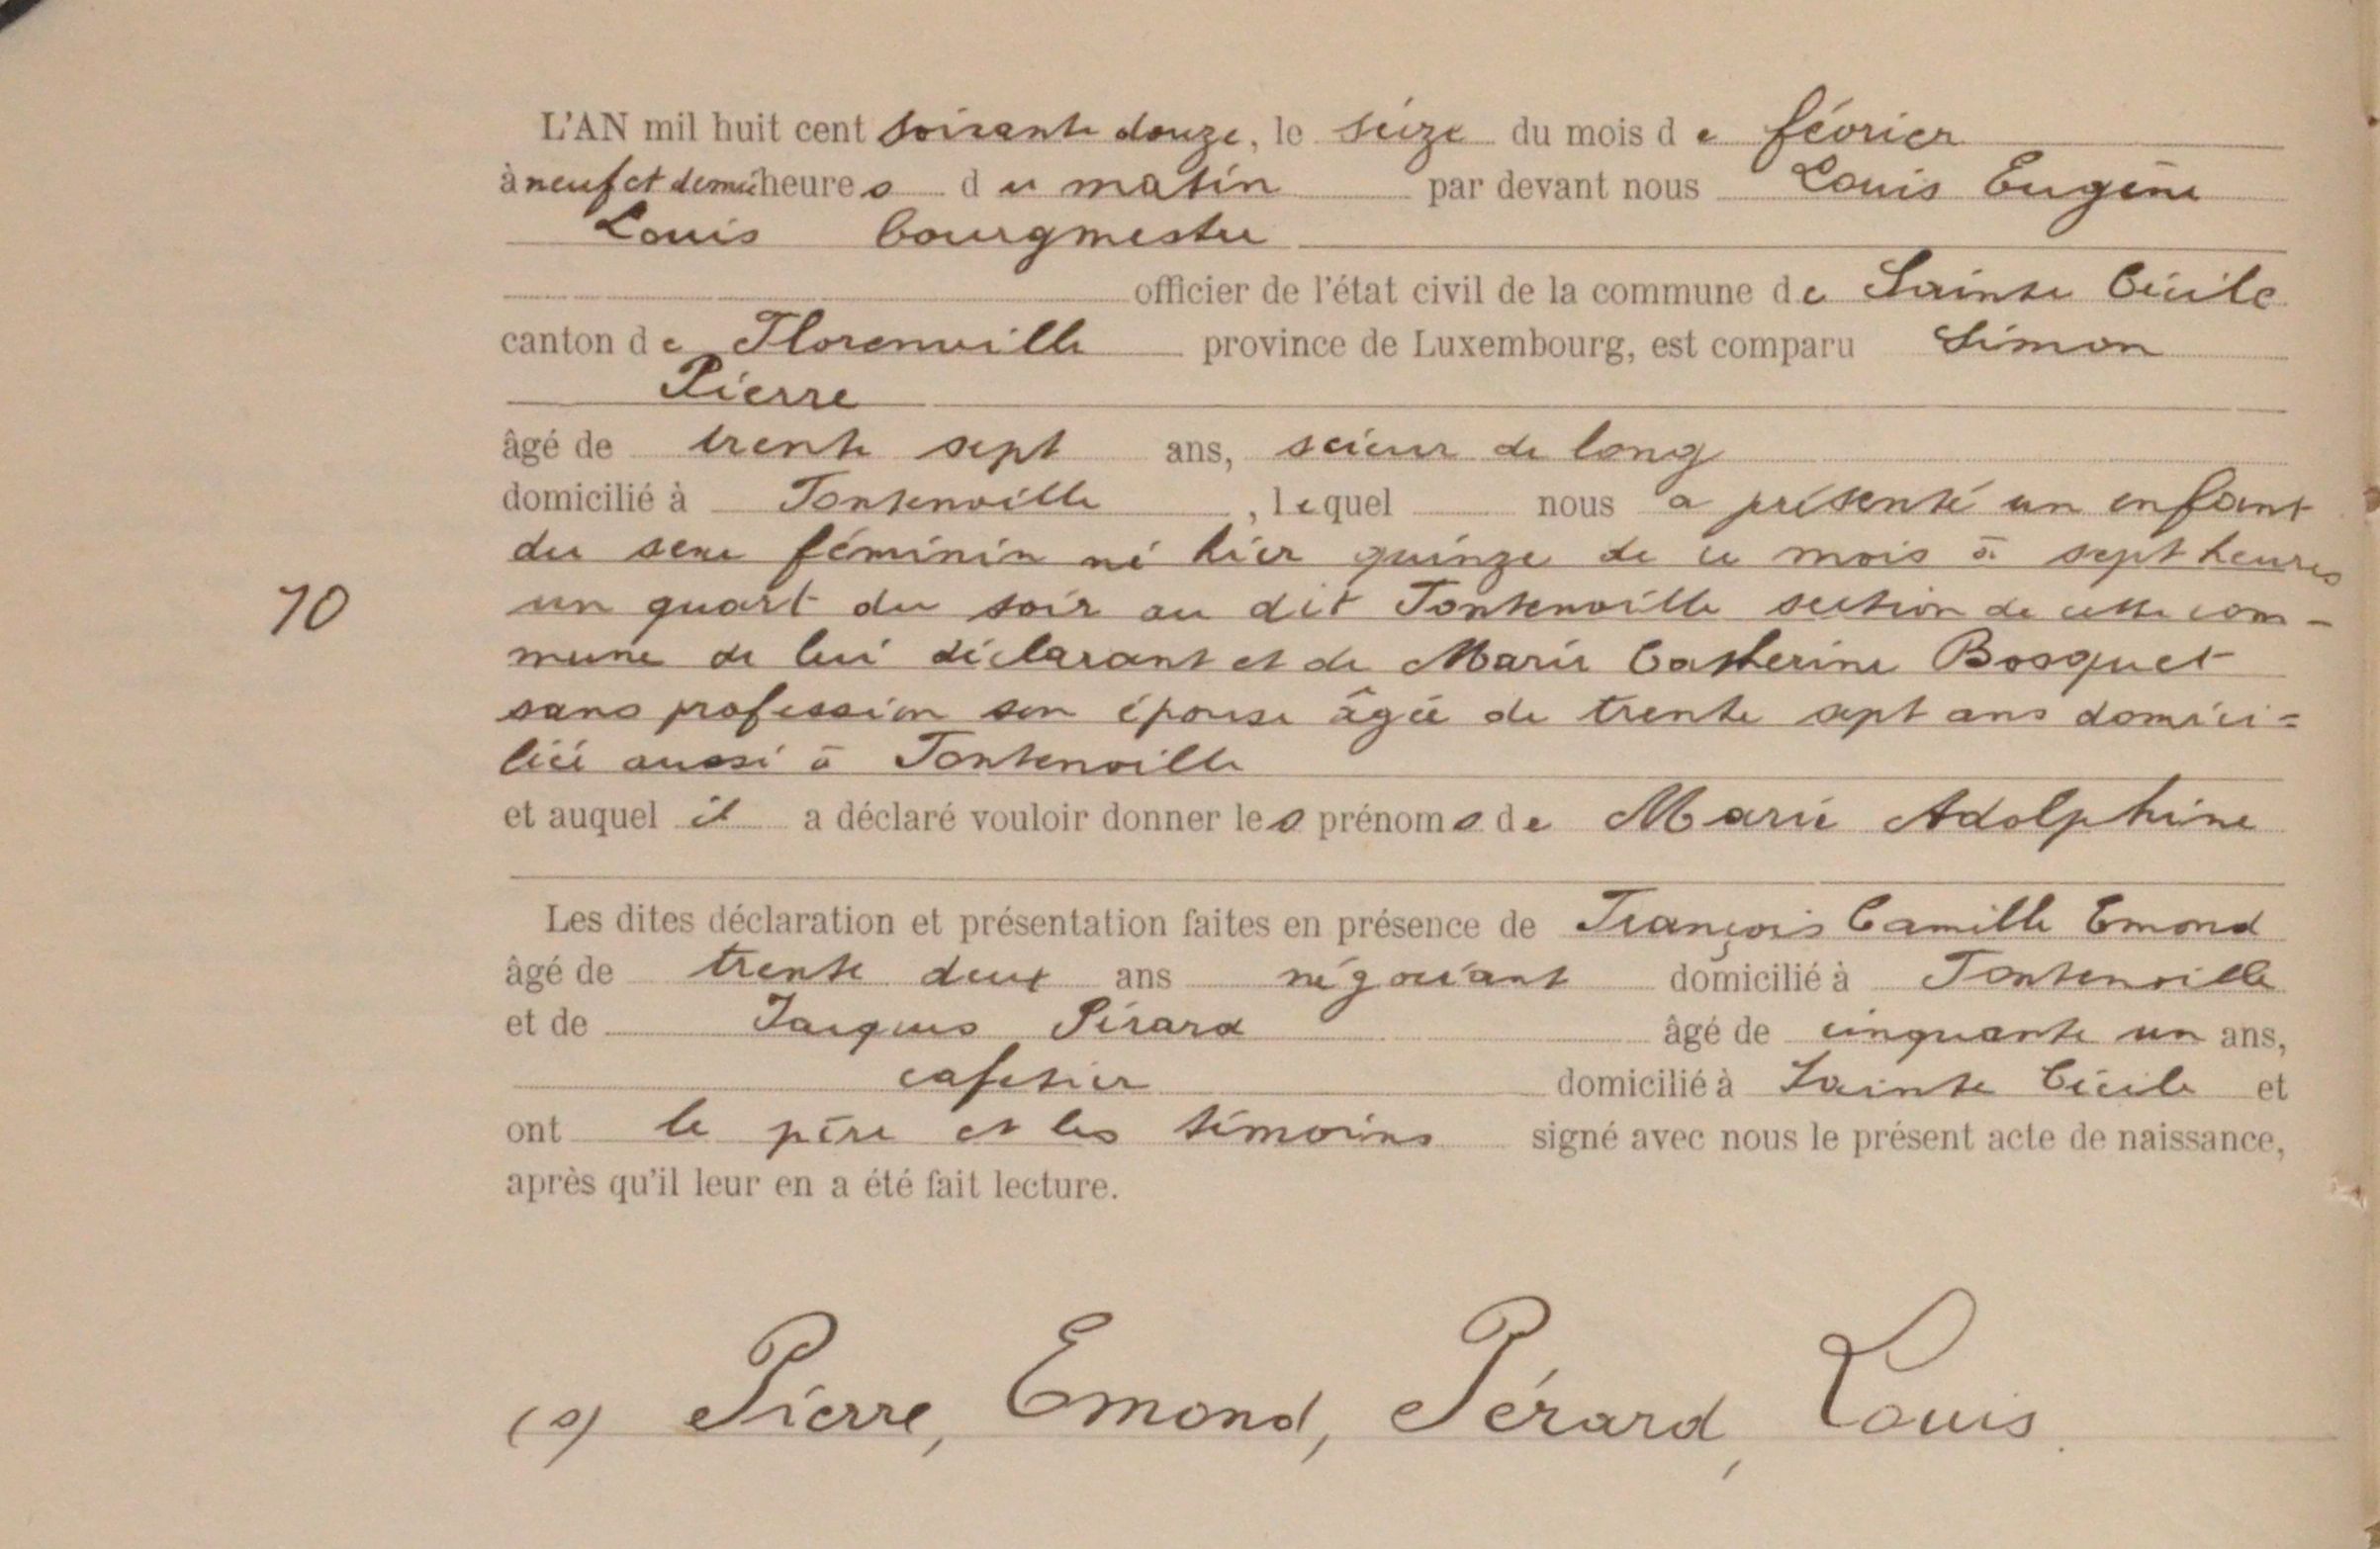 L'AN mil huit cent soixante douze, le seize du mois de février
à neuf et demie heures du matin par devant nous Louis Eugène
Louis bourgmestre
officier de l'état civil de la commune de Sainte Cécile
canton de Florenville province de Luxembourg, est comparu Simon
Pierre
âgé de trente sept ans, scieur de long
domicilié à Fontenoille, lequel nous a présenté un enfant
du sexe féminin né hier quinze de ce mois à sept heures
10
un quart du soir au dit Fontenoille section de cette com-
mune de lui déclarant et de Marie Catherine Bosquet
sans profession son épouse âgée de trente sept ans domici=
liée aussi à Fontenoille
et auquel il a déclaré vouloir donner les prénoms de Marie Adolphine
Les dites déclaration et présentation faites en présence de François Camille Emond
âgé de trente deux ans négociant domicilié à Fontenoille
et de Jacques Pérard âgé de cinquante un ans,
cafetier domicilié à Sainte Cécile et
ont le père et les témoins signé avec nous le présent acte de naissance,
après qu'il leur en a été fait lecture.
(s) Pierre, Emond, Pérard, Louis.